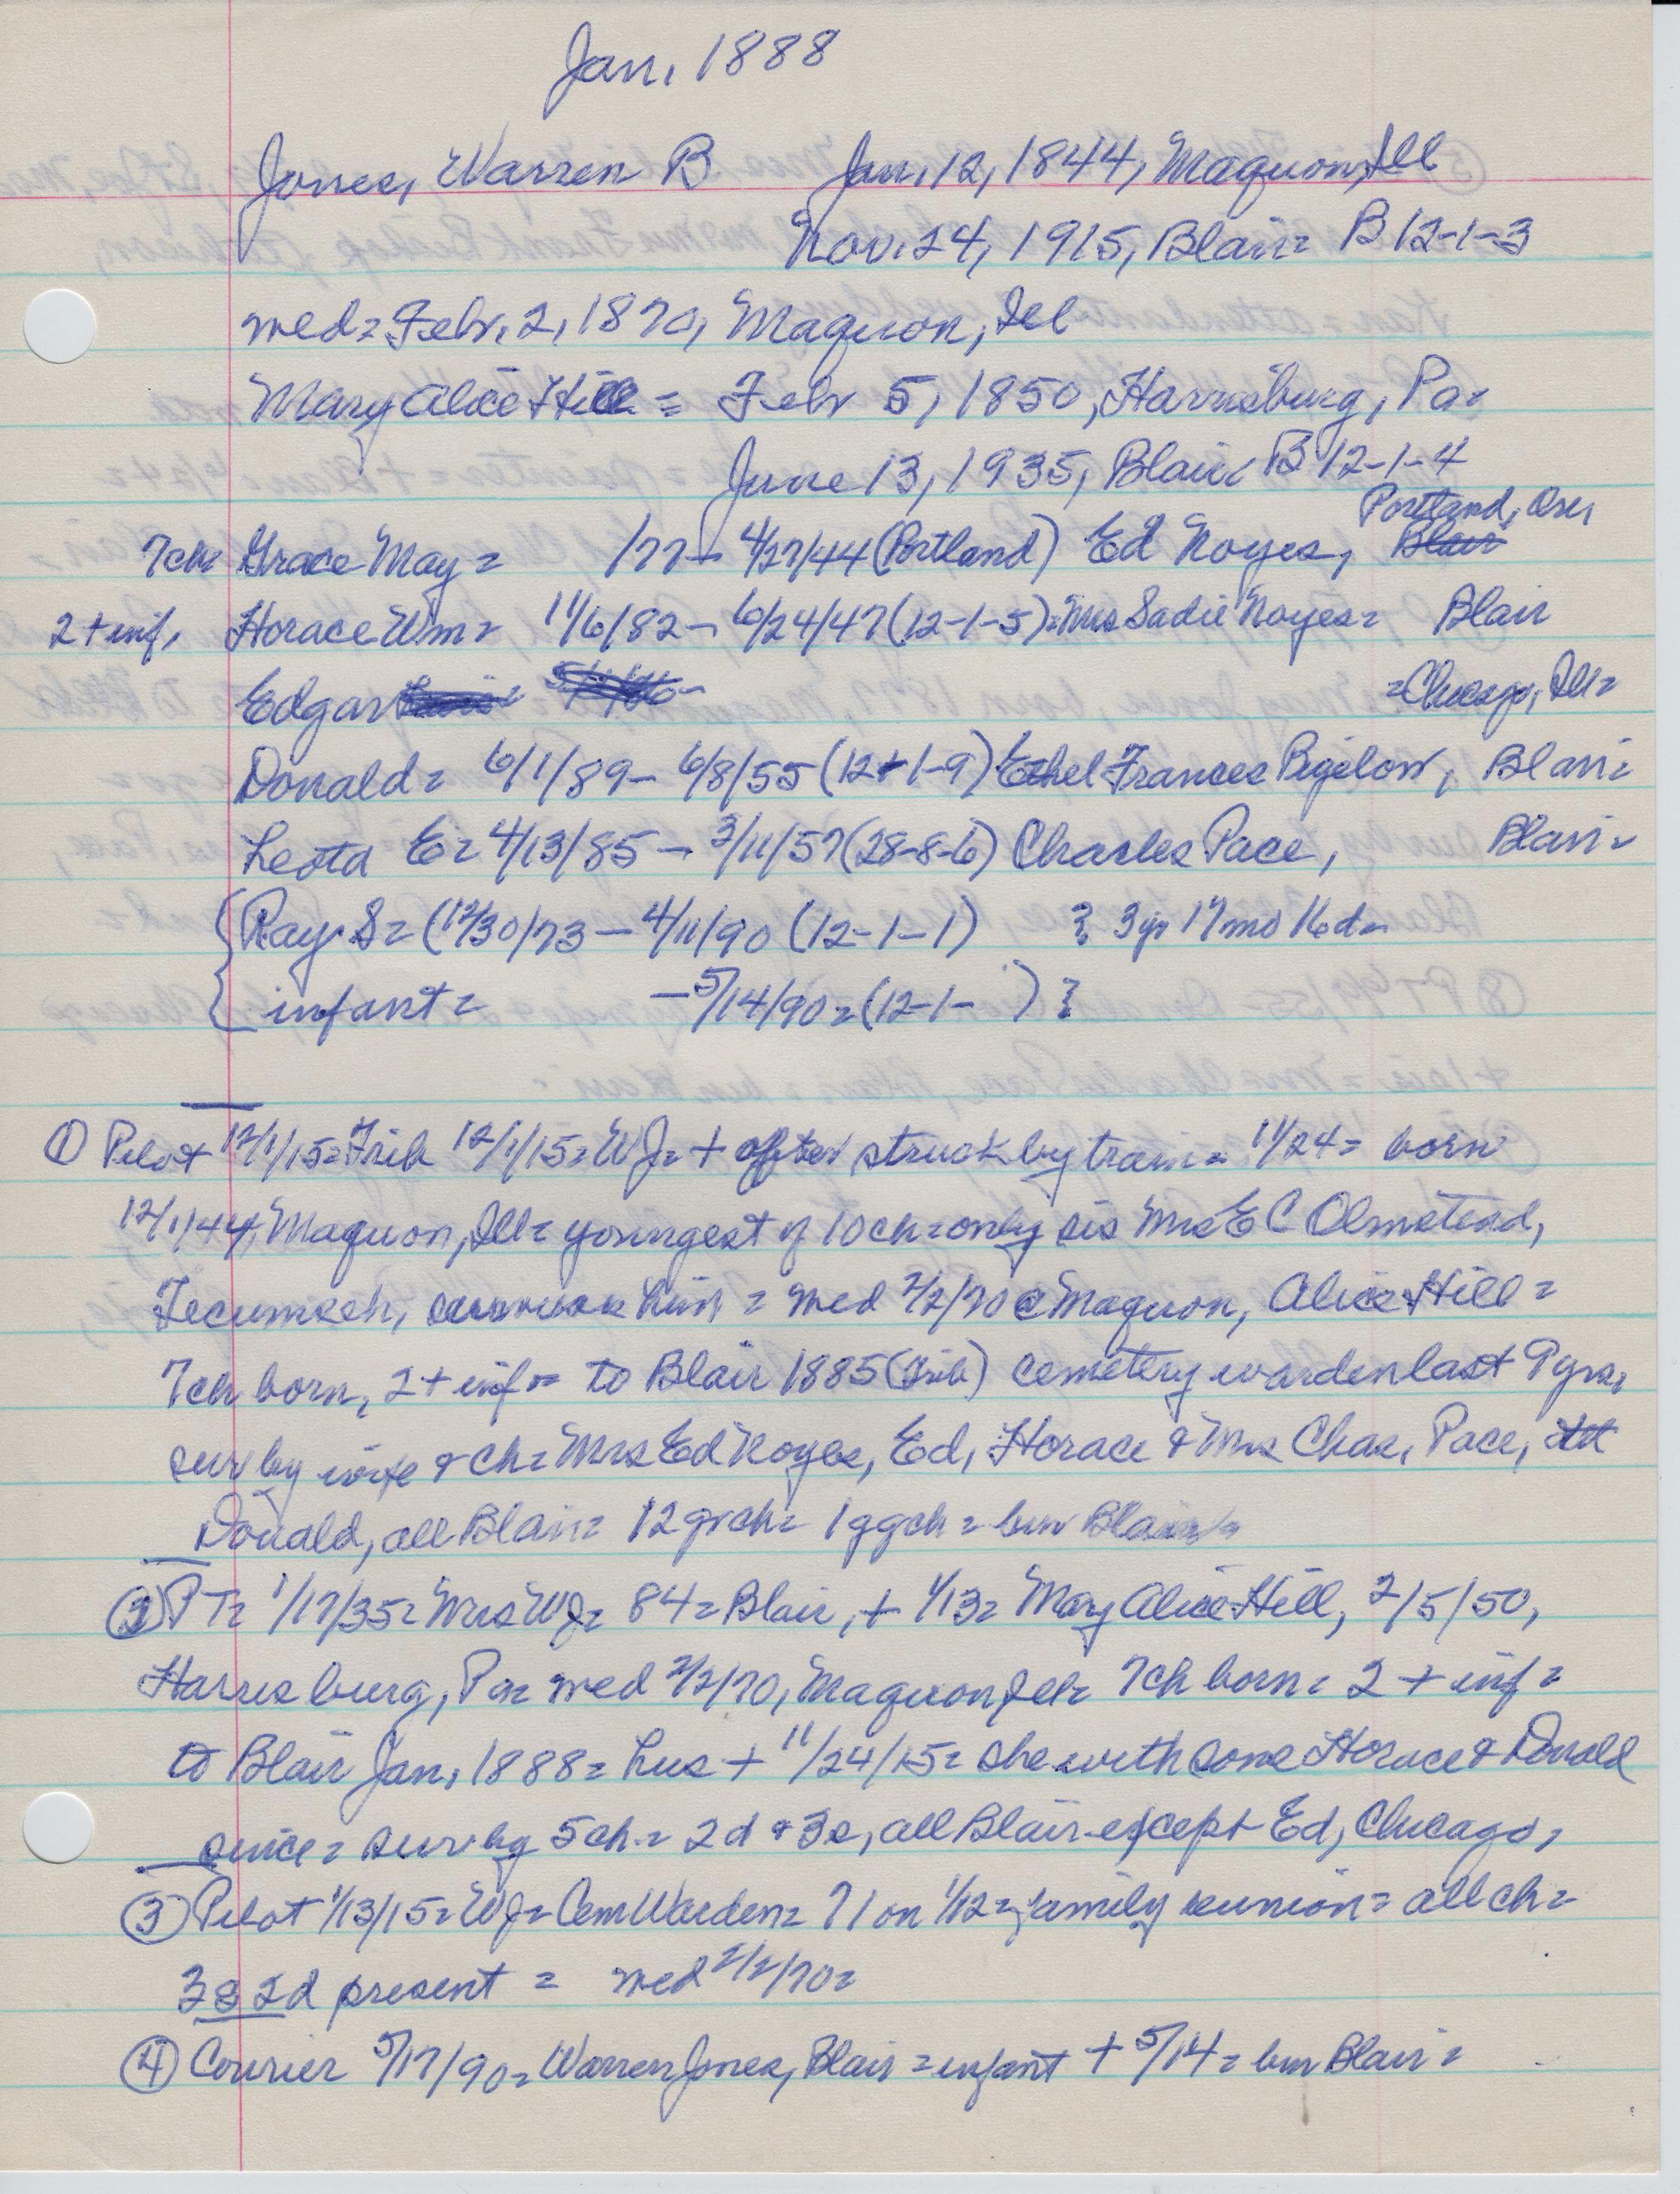 Jan, 1888
Jones, Warren B. Jan, 12, 1844, Maquon, Ill
Nov. 24, 1915, Blair= B 12-1-3
med= Febr. 2, 1870, Maquon, Ill
Mary Alice Hill = Febr 5, 1850, Harrisburg, Pa=
June 13, 1935, Blair= B 12-1-4
Portland, Ore,
7ch= Grace May= /77- 4/27/44 (Portland) Ed Noyes, Blair
2 + inf, Horace Wm= 11/6/82- 6/24/47 (12-1-5)= Mrs Sadie Noyes= Blair
Edgar =Chicago, Ill=
Donald= 6/1/89- 6/8/55 (12-1-9) Ethel Frances Bigelow, Blair=
Leota E= 4/13/85 - 3/11/57 (28-8-6) Charles Pace, Blair=
Ray S= (12/30/73 - 4/11/90 (12-1-1) ? 3 yr 17 mo 16 d=
infant= -5/14/90= (12-1- ) ?
① Pilot 12/1/15= Trib 12/1/15= WJ= + after struck by train= 11/24= born
12/1/44, Maquon, Ill= youngest of 10 ch= only sis Mrs E C Olmstead,
Tecumseh, him = med 2/2/70 @ Maquon, Alice Hill=
7ch born, 2 + inf= to Blair 1885 (Trib) cemetery warden last 9 yrs,
sur by wife & ch= Mrs Ed Noyes, Ed, Horace & Mrs Chas, Pace,
Donald, all Blair= 12 grch= 1 ggch = bur Blair=
② PT= 1/17/35= Mrs WJ= 84= Blair, + 1/13= Mary Alice Hill, 2/5/50,
Harrisburg, Pa= med 2/2/70, Maquon, Ill= 7ch born= 2 + inf=
to Blair Jan, 1888= hus + 11/24/15= she with sons Horace & Donald
since= sur by 5 ch= 2d & 3s, all Blair except Ed, Chicago,
③ Pilot 1/13/15= WJ= Cem Warden= 71 on 1/12= family reunion= all ch=
3s 2d present = med 2/2/70=
④ Courier 5/17/90= Warren Jones, Blair = infant + 5/14= bur Blair=